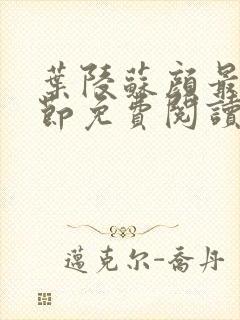 葉陵蘇顏最
節免費閱讀
邁克尔-喬丹